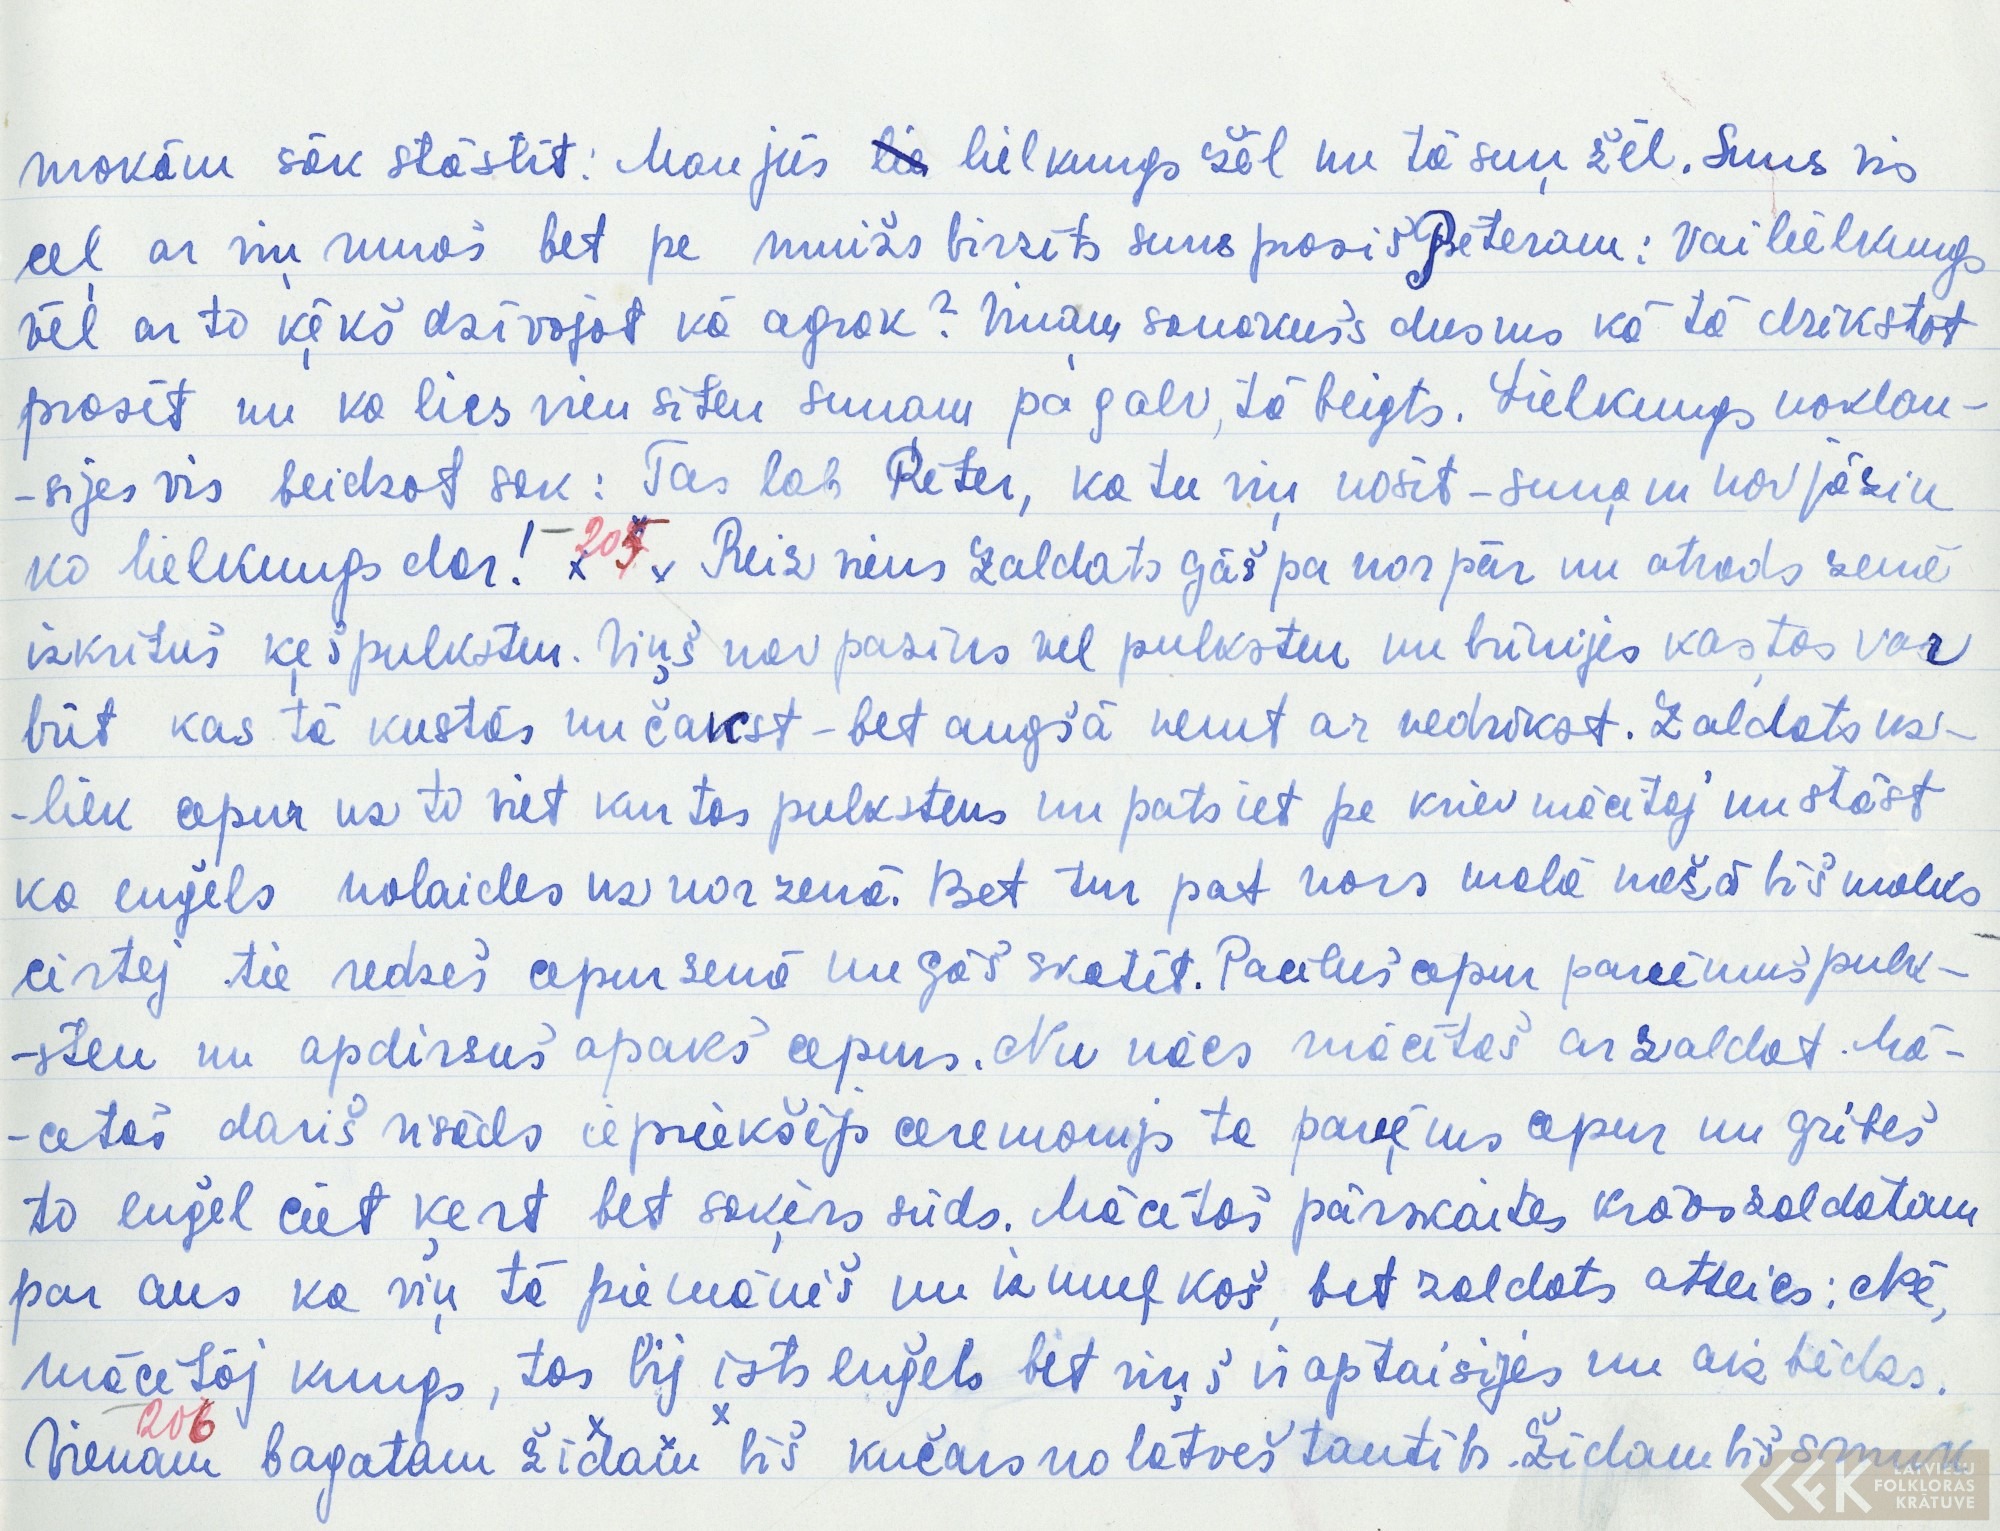 mokām sāk stāstīt: Man jūs lielkungs žēl un tā suņ žēl. Suns vis
ceļ ar viņ runaš bet pe muižs birzīts suns prasiš Pēteram: Vai lielkungs
vēl ar to ķēkš dzīvojot kā agrak? Viņam sanakušs dusms kā tā drīkstot
prasīt un ka lies vien siten sunam pa galv, tā beigts. Lielkungs noklau-
-sijes vis beidzot sak: Tas lab Pēter, ka tu viņ nosit-suņam nav jāzin
ko lielkungs dar! - 205 x x Reiz viens zaldats gāš pa nor pār un atrods zemē
izkrituš ķešpulksten. Viņš nav pazins vel pulksten un brīnijes kas tas var
būt kas tā kustās un čakst - bet augšā nemt ar nedrīkst. Zaldats uz-
-liek cepur uz to viet kur tas pulkstens un pats iet pe kriev mācītaj un stāst
ka eņģels nolaides uz nor zemē. Bet tur pat nors malā mežā biš malks
cirtej tie redzeš cepur zemē un gāš skatīt. Paceluš cepur paņēmuš pulk-
-sten un apdirsuš apakš cepurs. Nu nācs mācītaš ar zaldat. Mā-
-cetaš dariš visāds iepriekšējs ceremonijs ta paņēms cepur un gribeš
to eņģel ciet ķert bet saķērs sūds. Mācītaš pārskaites krāvs zaldātam
par aus ka viņ tā piemāniš un izmuļkoš, bet zaldats atteics: Nē,
mācetāj kungs, tas bij īsts eņģels bet viņš ir aptaisijes un aizbēdzs.
206 x x x
Vienam bagatam židam biš kučars no latveš tautīb. Židam biš smuk
LATVIEŠU
FOLKLORAS
KRĀTUVE